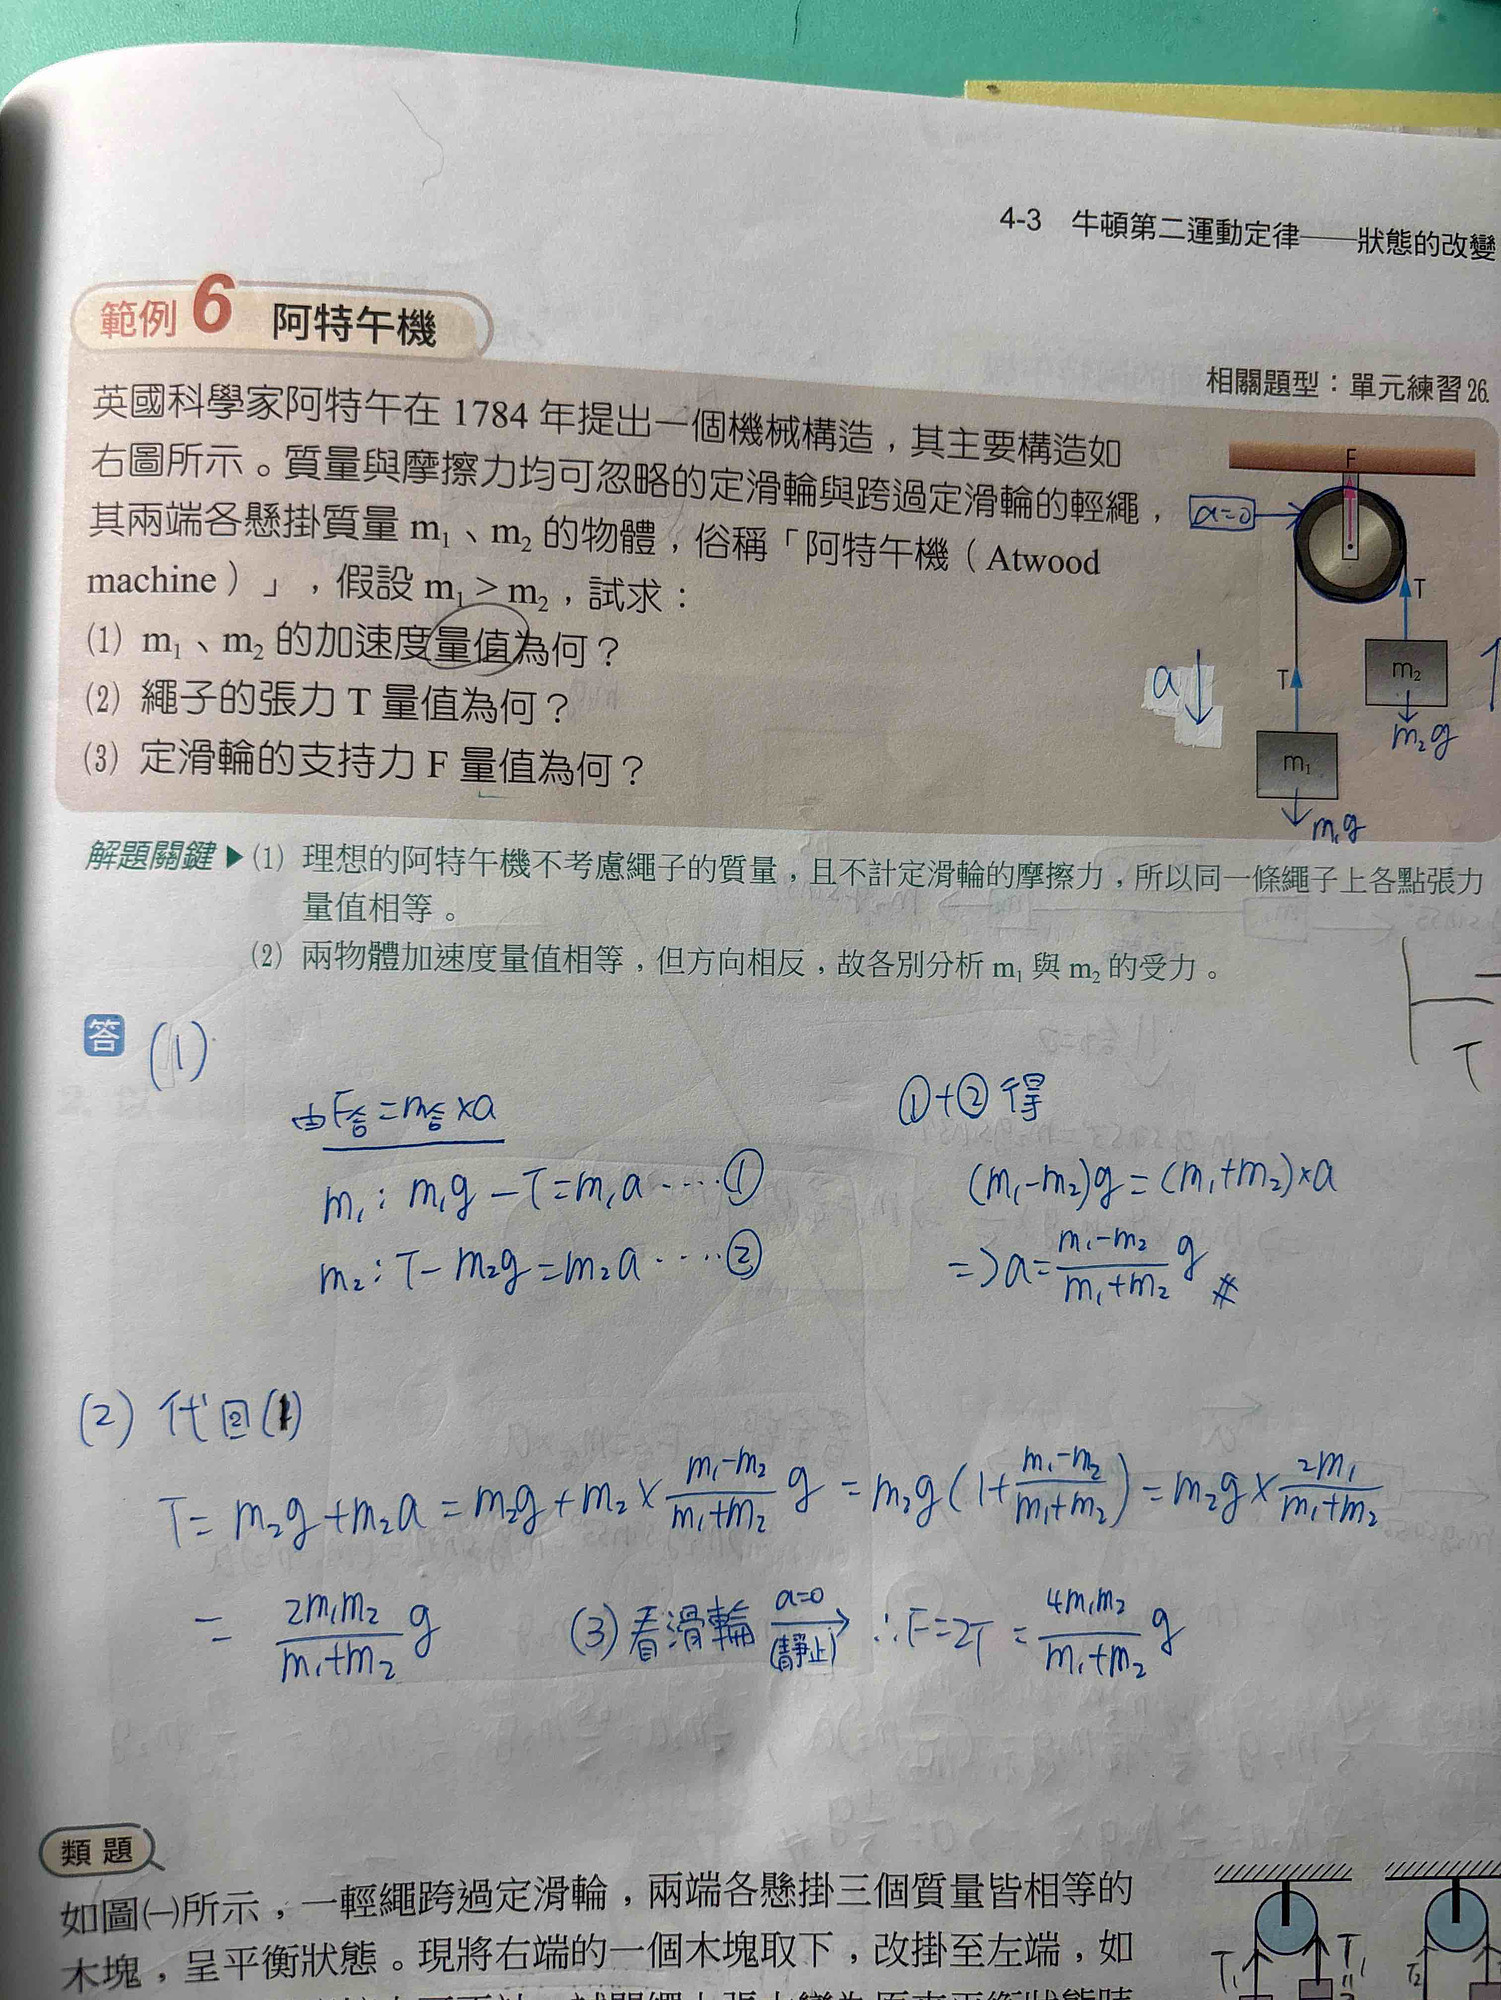 4-3 牛頓第二運動定律——狀態的改變
範例 6 阿特午機
相關題型：單元練習 26.
英國科學家阿特午在 1784 年提出一個機械構造，其主要構造如
右圖所示。質量與摩擦力均可忽略的定滑輪與跨過定滑輪的輕繩，
其兩端各懸掛質量 m₁、m₂ 的物體，俗稱「阿特午機（Atwood
machine）」，假設 m₁ > m₂，試求：
(1) m₁、m₂ 的加速度量值為何？
(2) 繩子的張力 T 量值為何？
(3) 定滑輪的支持力 F 量值為何？
F
a=0
T
T
a
m₂
m₂g
m₁
m₁g
解題關鍵▶(1) 理想的阿特午機不考慮繩子的質量，且不計定滑輪的摩擦力，所以同一條繩子上各點張力
量值相等。
(2) 兩物體加速度量值相等，但方向相反，故各別分析 m₁ 與 m₂ 的受力。
T
答 (1)
由F合=m合×a
m₁：m₁g－T=m₁a ‥‥①
m₂：T－m₂g=m₂a ‥‥②
①+②得
(m₁-m₂)g=(m₁+m₂)×a
=>a=\frac{m₁-m₂}{m₁+m₂}g #
(2) 代回(1)
T= m₂g+m₂a = m₂g+m₂×\frac{m₁-m₂}{m₁+m₂}g = m₂g(1+\frac{m₁-m₂}{m₁+m₂}) = m₂g×\frac{2m₁}{m₁+m₂}
= \frac{2m₁m₂}{m₁+m₂}g
(3)看滑輪 a=0 (靜止) → ∴F=2T = \frac{4m₁m₂}{m₁+m₂}g
類題
如圖㈠所示，一輕繩跨過定滑輪，兩端各懸掛三個質量皆相等的
木塊，呈平衡狀態。現將右端的一個木塊取下，改掛至左端，如
T₁
T₁
T₂